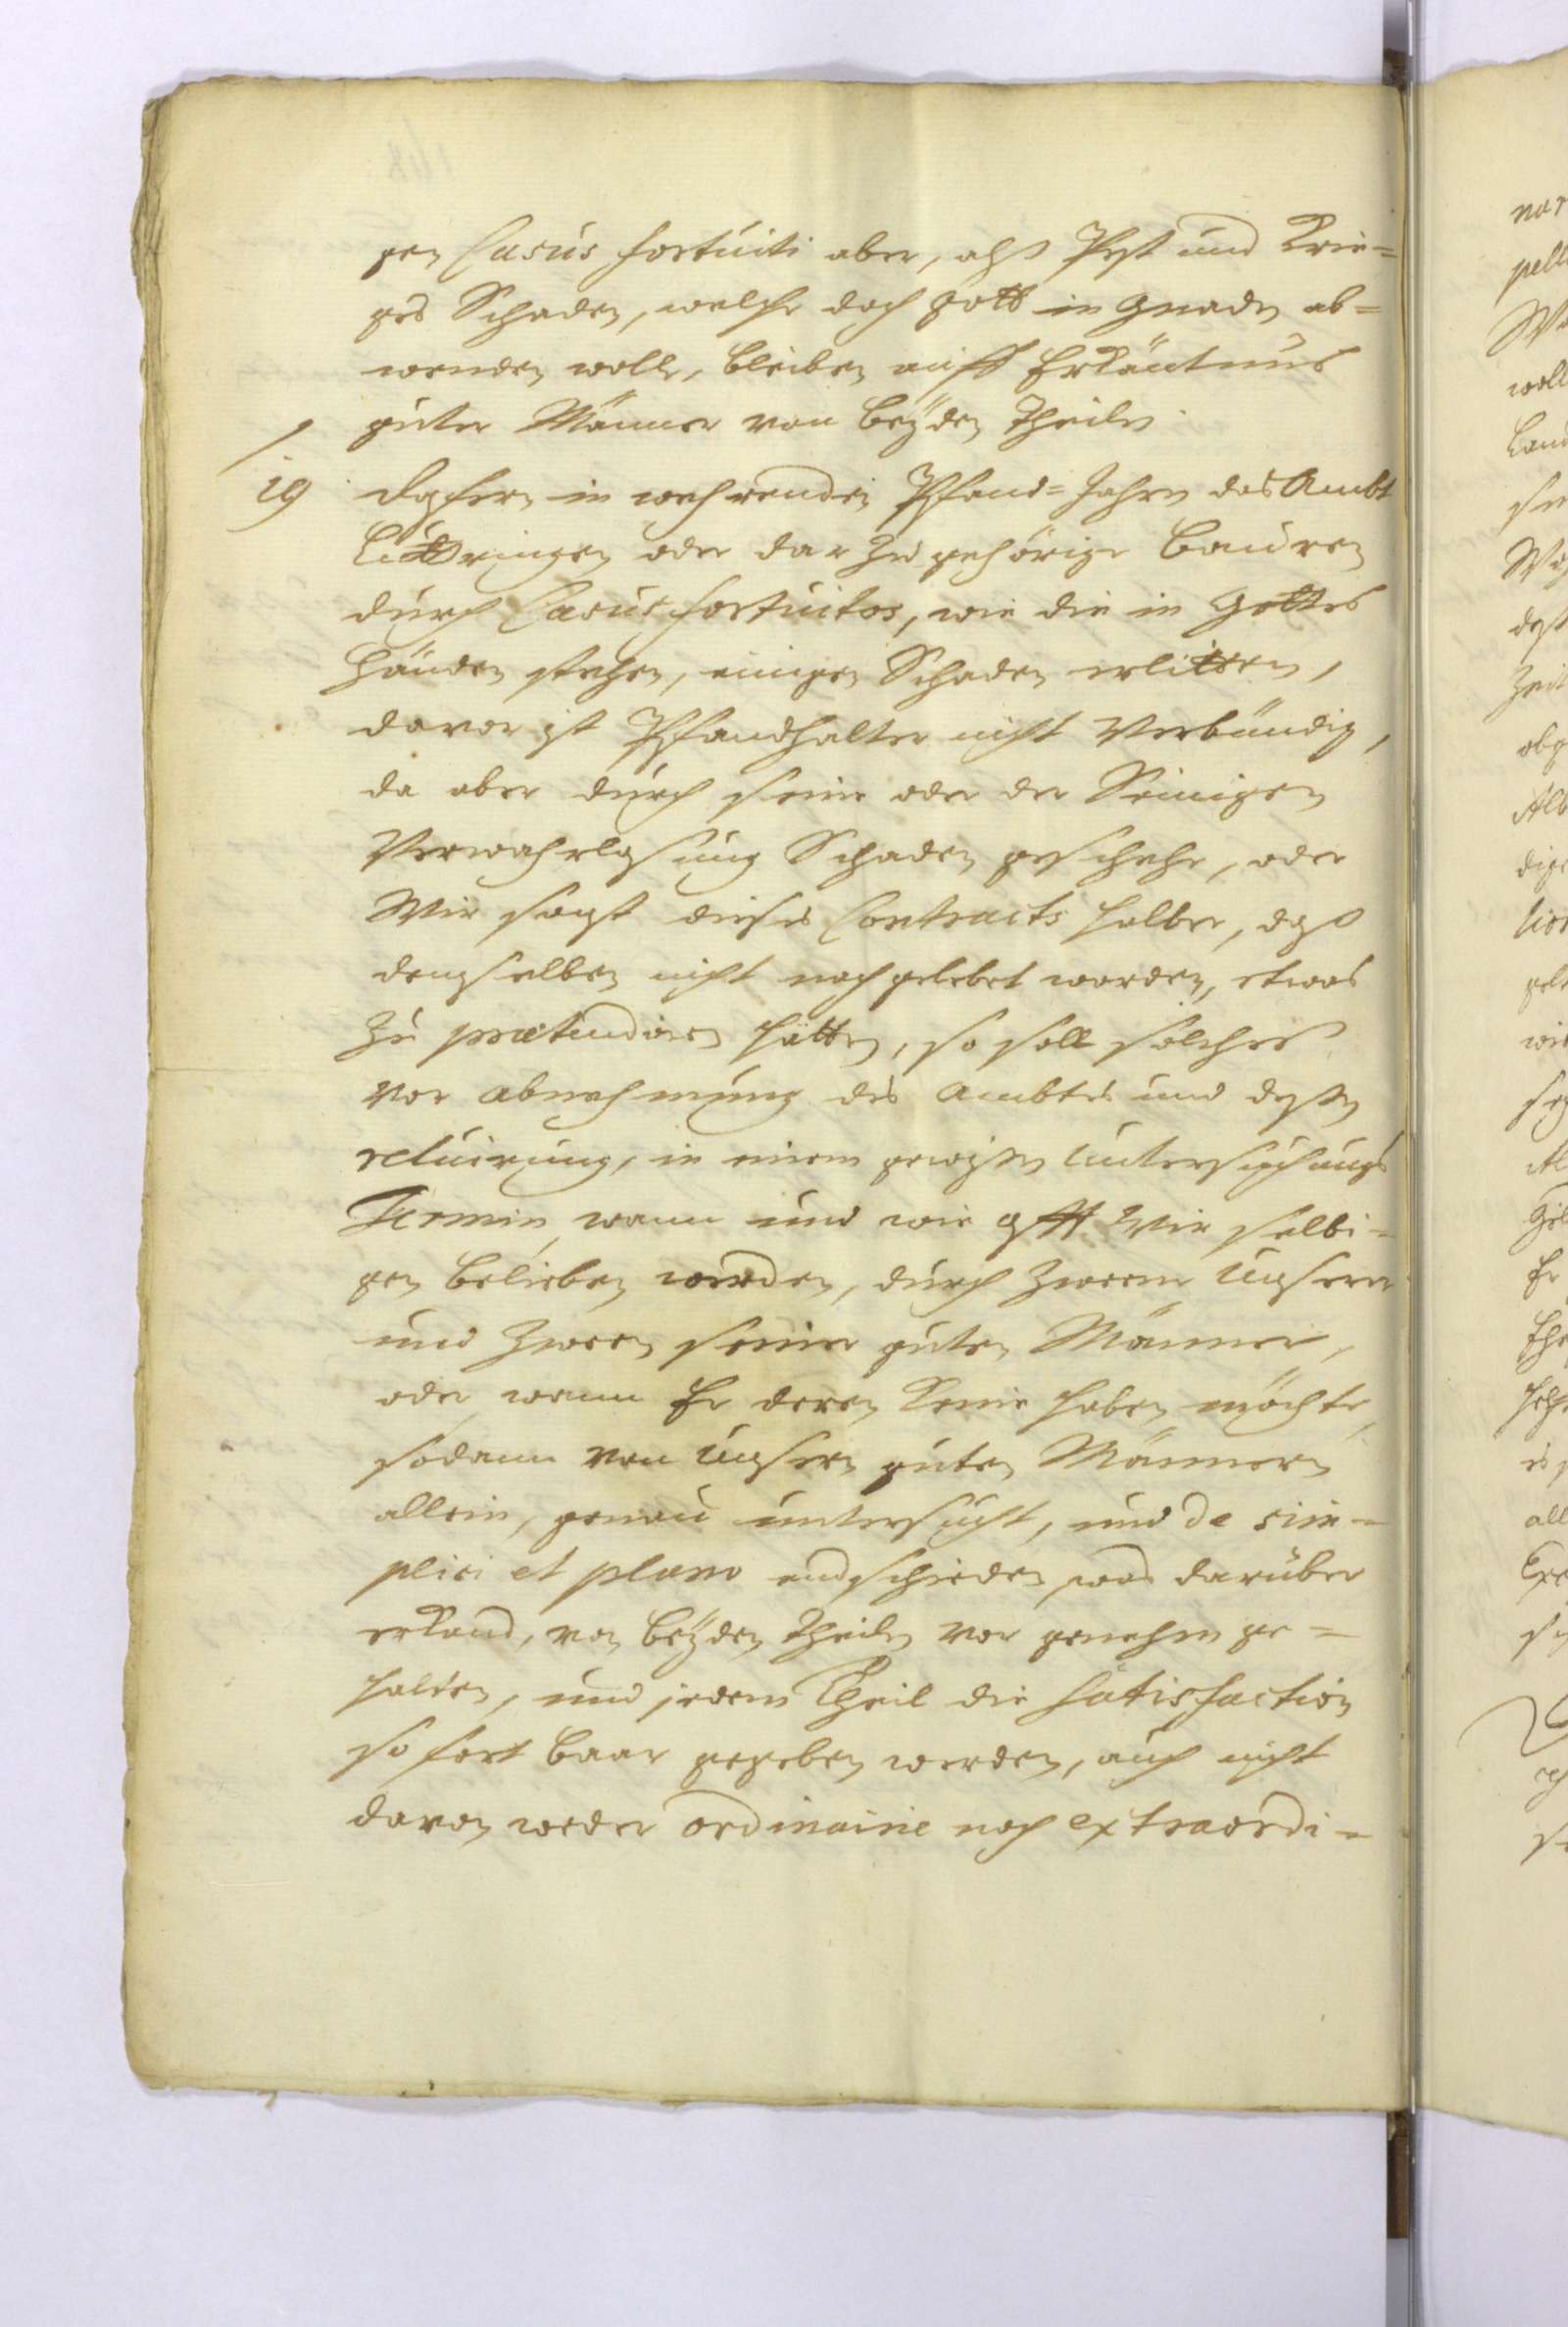 gen Casus fortuiti aber, alß Pest und Krie=
ges Schaden, welche doch Gott in Gnaden ab=
wenden wolle, bleiben auff Erkäntnus
guter Männer von beÿden Theilen.
19 Dofern in wehrenden Pfand=Jahren das Ambt
Lüttringen oder darzu gehörige Bauren
durch Casus fortuitos, wie die in Gottes
Händen stehen, einigen Schaden erlitten,
davor ist Pfandhalter nicht Verbündig,
da aber durch seine oder der Seinigen
Verwahrlosung Schaden geschehe, oder
Wir sonst dieses Contracts halber, daß
demselben nicht nachgelebet worden, etwas
zu prætendiren hätten, so soll solches
vor Abnehmung des Ambtes und deßen
reluirung, in einem gewißen Untersuchungs
Termin, wann und wie offt Wir selbi=
gen belieben werden, durch zweene Unserer
und zween seiner guten Männer,
oder wann Er deren keine haben möchte,
sodann von Unsern guten Männern
allein, genau untersucht, und de sim=
plici et plano endschieden, was darüber
erkand, von beÿden Theilen vor genehm ge=
halten, und jedem Theil die Satisfaction
so fort baar gegeben werden, auch nicht
davon weder ordinairie noch extraordi=